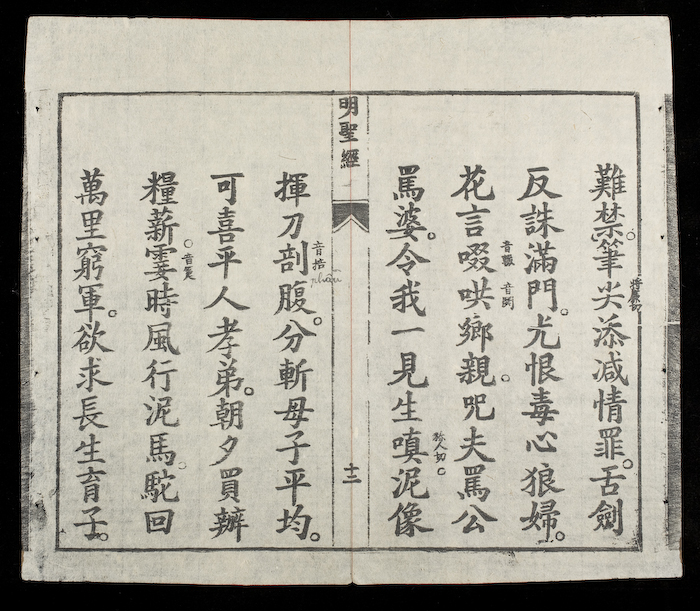 難禁筆尖添减情罪舌劍
反誅滿門尤恨毒心狼婦
花言啜哄鄉親咒夫罵公
音輟
音閧
罵婆令我一見生嗔泥像
称人切
明聖經
十二
揮刀剖腹分斬母子平均
音掊
可喜平人孝弟朝夕買辦
糧薪霎時風行泥馬駝回
音箑
萬里窮軍欲求長生育子